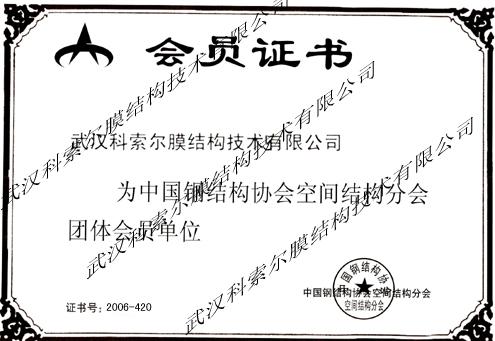 会员证书
武汉科索尔膜结构技术有限公司
为中国钢结构协会空间结构分会
团体会员单位
中国钢结构协会空间结构分会
证书号：2006-420
中国钢结构协会
空间结构分会
武汉科索尔膜结构技术有限公司
武汉科索尔膜结构技术有限公司
武汉科索尔膜结构技术有限公司